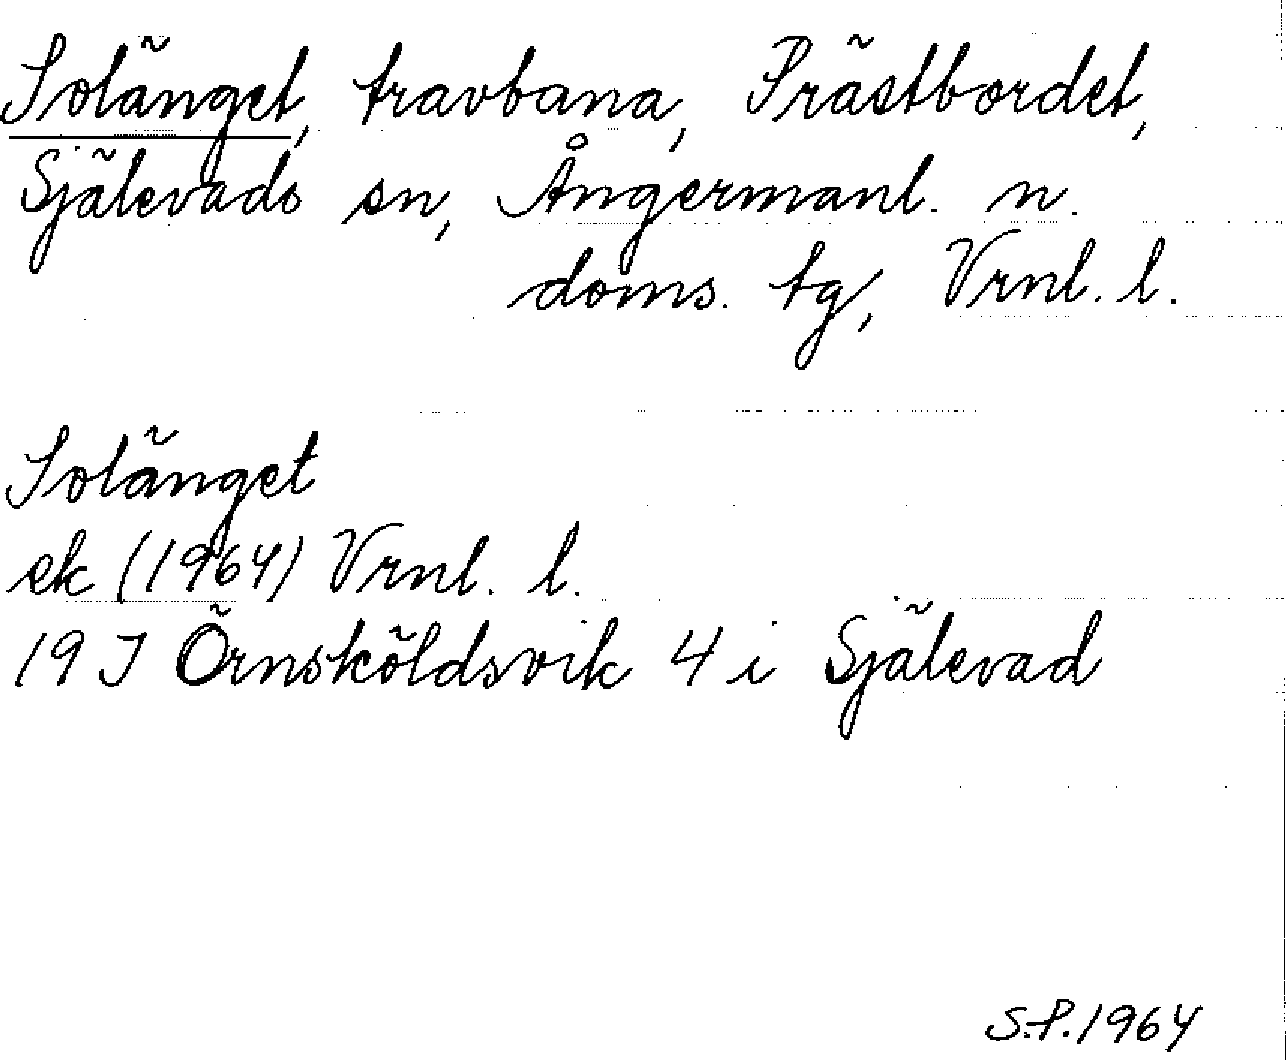 Solänget, travbana, Prästbordet,
Själevads sn, Ångermanl. n.
doms. tg, Vrnl. l.
Solänget
ek (1964) Vrnl. l.
19 J Örnsköldsvik 4 i Själevad
S.P. 1964